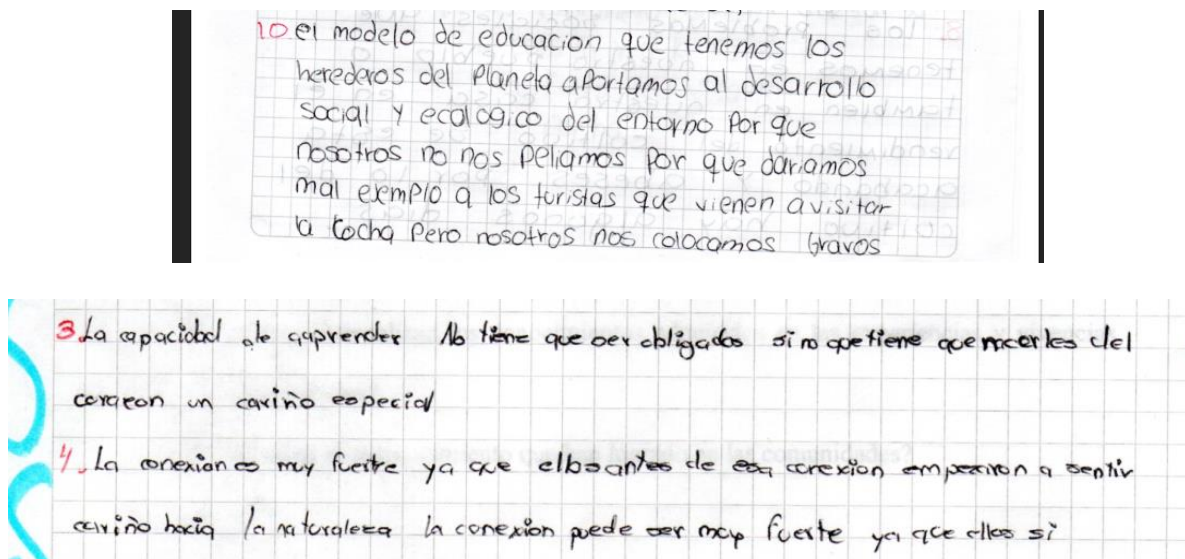 10. el modelo de educacion que tenemos los
herederos del Planeta aPortamos al desarrollo
social y ecologico del entorno Por que
nosotros no nos peliamos Por que dariamos
mal exemplo a los turistas que vienen avisitar
la cocha Pero nosotros nos colocamos bravos
3. La capacidad de aaprender No tiene que ser obligados si no quetiene que nacerles del
corazon un cariño especial
4. La conexion es muy fuerte ya que ellos antes de esa conexion empezaron a sentir
cariño hacia la naturaleza la conexion puede ser muy fuerte ya que ellos si